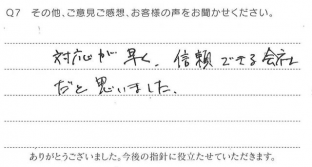 Q7 その他、ご意見ご感想、お客様の声をお聞かせください。
対応が早く、信頼できる会社
だと思いました。
ありがとうございました。今後の指針に役立たせていただきます。